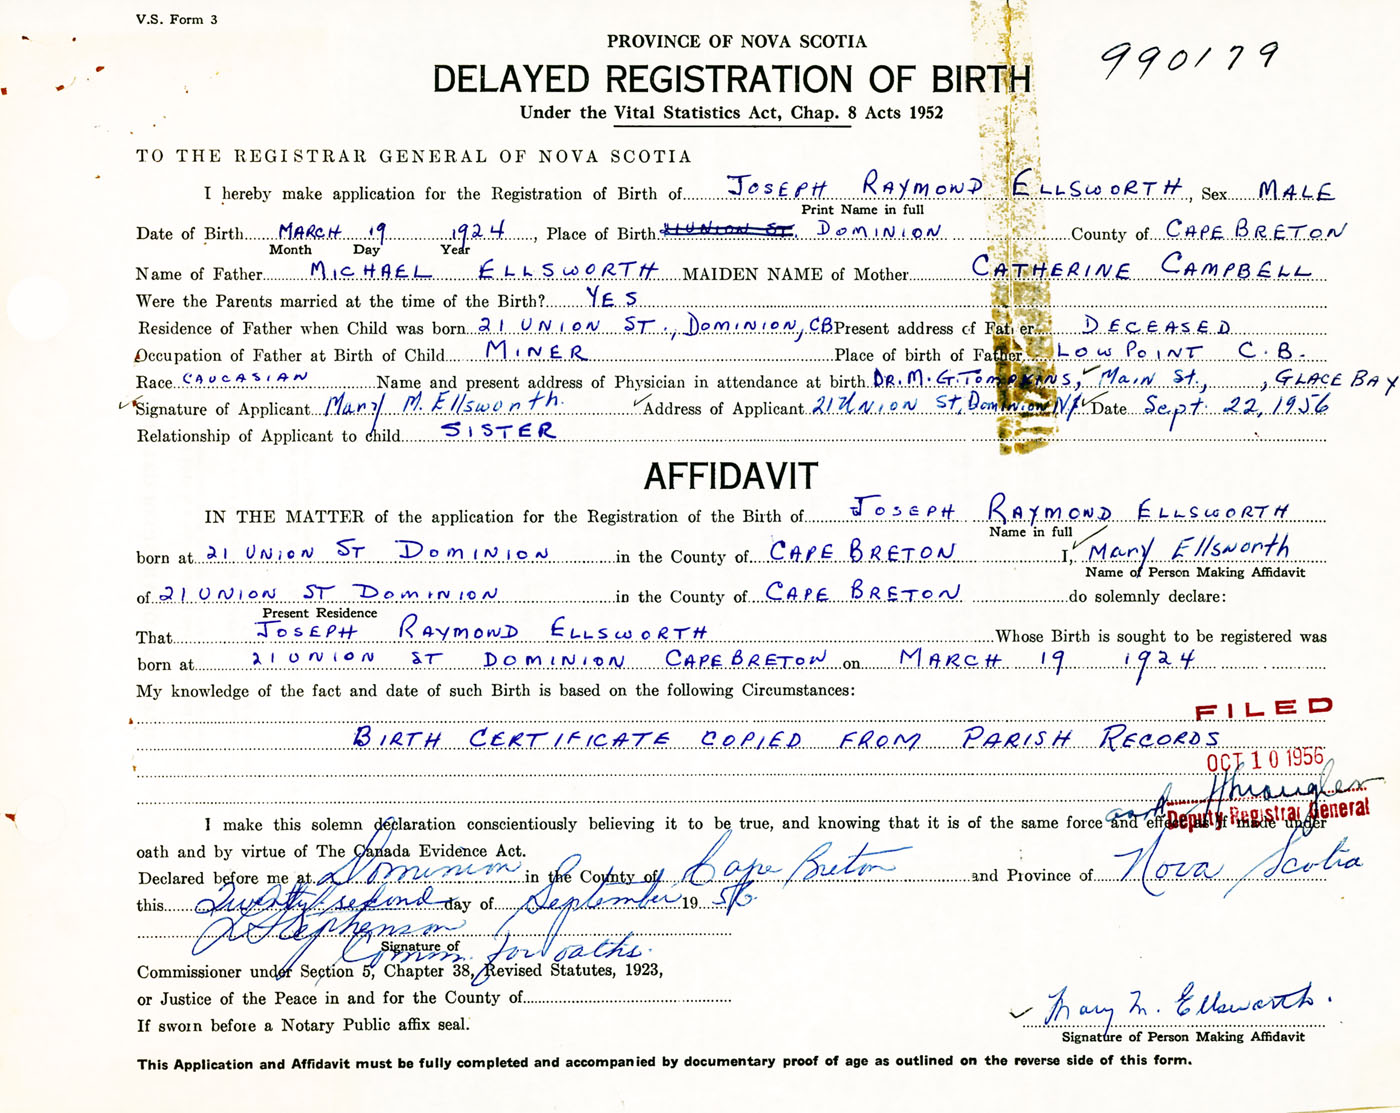 V.S. Form 3
PROVINCE OF NOVA SCOTIA
990179
DELAYED REGISTRATION OF BIRTH
Under the Vital Statistics Act, Chap. 8 Acts 1952
TO THE REGISTRAR GENERAL OF NOVA SCOTIA
I hereby make application for the Registration of Birth of JOSEPH RAYMOND ELLSWORTH, Sex MALE
Print Name in full
Date of Birth MARCH 19 1924, Place of Birth 21 UNION ST. DOMINION County of CAPE BRETON
Month Day Year
Name of Father MICHAEL ELLSWORTH MAIDEN NAME of Mother CATHERINE CAMPBELL
Were the Parents married at the time of the Birth? YES
Residence of Father when Child was born 21 UNION ST., DOMINION, CB Present address of Father DECEASED
Occupation of Father at Birth of Child MINER Place of birth of Father LOW POINT C.B.
Race CAUCASIAN Name and present address of Physician in attendance at birth DR. M. G. TOMPKINS, MAIN ST., , GLACE BAY
Signature of Applicant Mary M. Ellsworth. Address of Applicant 21 Union St, Dominion N.S. Date Sept. 22, 1956
Relationship of Applicant to child SISTER
AFFIDAVIT
IN THE MATTER of the application for the Registration of the Birth of JOSEPH RAYMOND ELLSWORTH
Name in full
born at 21 UNION ST DOMINION in the County of CAPE BRETON I, Mary Ellsworth
Name of Person Making Affidavit
of 21 UNION ST DOMINION in the County of CAPE BRETON do solemnly declare:
Present Residence
That JOSEPH RAYMOND ELLSWORTH Whose Birth is sought to be registered was
born at 21 UNION ST DOMINION CAPE BRETON on MARCH 19 1924
My knowledge of the fact and date of such Birth is based on the following Circumstances:
FILED
BIRTH CERTIFICATE COPIED FROM PARISH RECORDS
OCT 10 1956
Deputy Registrar General
I make this solemn declaration conscientiously believing it to be true, and knowing that it is of the same force and effect as if made under
oath and by virtue of The Canada Evidence Act.
Declared before me at Dominion in the County of Cape Breton and Province of Nova Scotia
this Twenty second day of September 19 56
Stephenson
Signature of
Comm. for oaths.
Commissioner under Section 5, Chapter 38, Revised Statutes, 1923,
or Justice of the Peace in and for the County of
If sworn before a Notary Public affix seal.
Mary M. Ellsworth.
Signature of Person Making Affidavit
This Application and Affidavit must be fully completed and accompanied by documentary proof of age as outlined on the reverse side of this form.